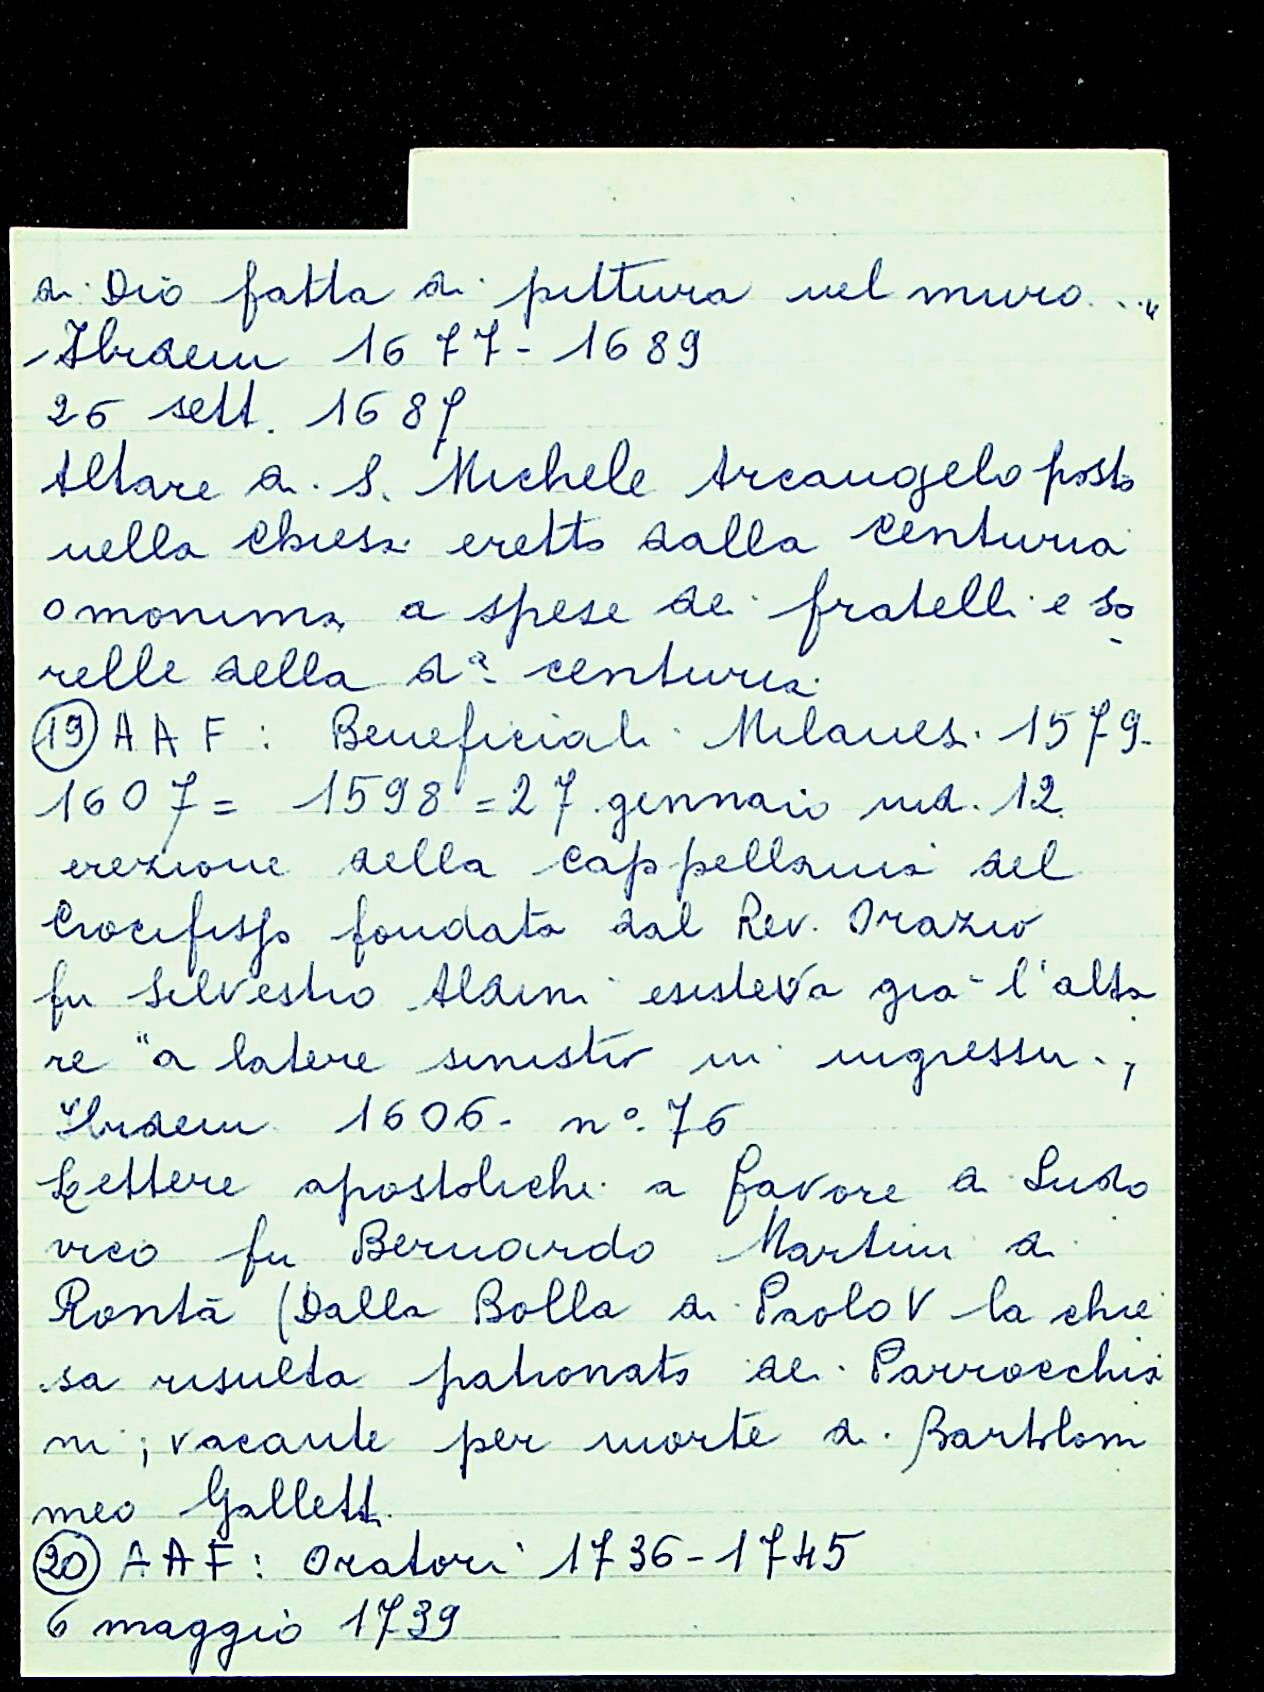 di Dio fatta di pittura nel muro..."
Ibidem 1677-1689
26 sett. 1687
Altare di S. Michele Arcangelo posto
nella chiesa eretto dalla centuria
omonima a spese dei fratelli e so
relle della d.ª centuria.
(19) A A F : Beneficiali Milanesi 1579-
1607 = 1598 = 27 gennaio ind. 12
erezione della cappellania del
Crocifisso fondata dal Rev. Orazio
fu Silvestro Aldini esisteva già l'alta
re "a latere sinistro in ingressu";
Ibidem 1606- nº 76
Lettere apostoliche a favore di Ludo
vico fu Bernardo Martini di
Rontà (Dalla Bolla di Paolo V la chie
sa risulta patronato dei Parrocchia
ni; vacante per morte di Bartolom
meo Galletti.
(20) A A F : Oratori 1736-1745
6 maggio 1739